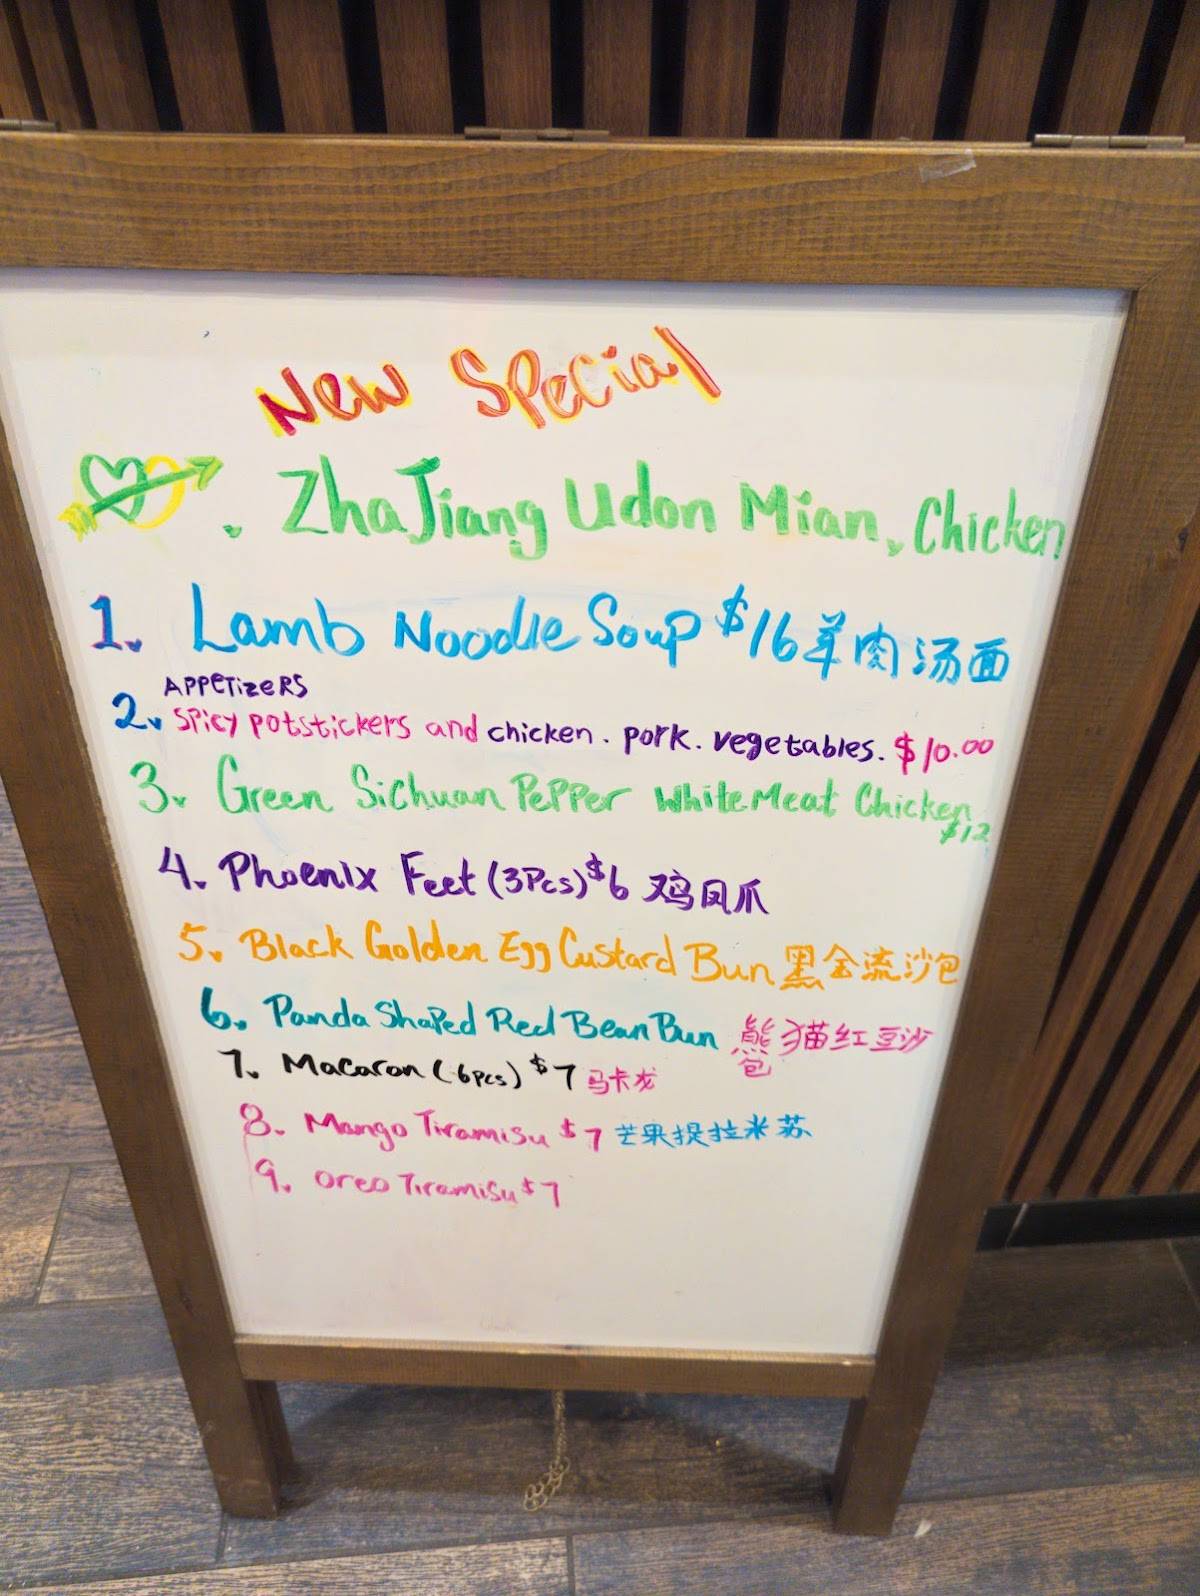 New Special
ZhaJiang Udon Mian, Chicken
1. Lamb Noodle Soup $16 羊肉汤面
APPETizeRS
2. Spicy potstickers and chicken. pork. vegetables. $10.00
3. Green Sichuan Pepper White Meat Chicken
$12
4. Phoenix Feet (3Pcs) $6 鸡凤爪
5. Black Golden Egg Custard Bun 黑金流沙包
6. Panda Shaped Red Bean Bun 熊猫红豆沙
包
7. Macaron (6pcs) $7 马卡龙
8. Mango Tiramisu $7 芒果提拉米苏
9. Oreo Tiramisu $7